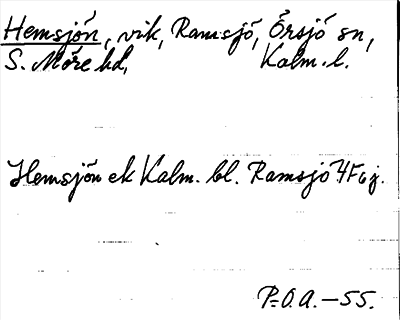 Hemsjön, vik, Ramsjö, Örsjö sn,
S. Möre hd, Kalm. l.
Hemsjön ek Kalm. bl. Ramsjö 4F6j.
P.O.A. - 55.